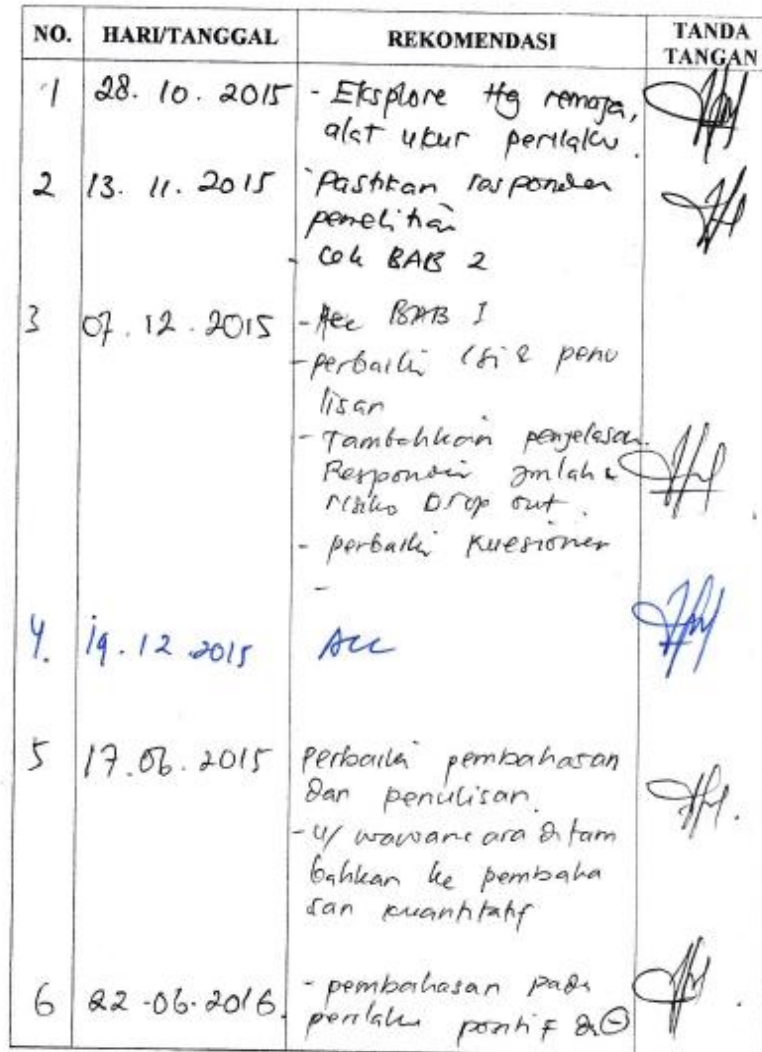 NO. HARI/TANGGAL REKOMENDASI TANDA TANGAN
1 28. 10. 2015 - Eksplore ttg remaja,
alat ukur perilaku.
2 13. 11. 2015 - Pastikan responden
penelitian
- Cek BAB 2
3 07. 12. 2015 - Acc BAB I
- perbaiki isi & penu
lisan
- Tambahkan penjelasan.
Responden jmlah &
risiko Drop out.
- perbaiki kuesioner
-
4. 19. 12. 2015 Acc
5 17. 06. 2015 perbaiki pembahasan
dan penulisan.
- u/ wawancara ditam
bahkan ke pembaha
san kuantitatif
6 22-06-2016. - pembahasan pada
perilaku positif & ⊖